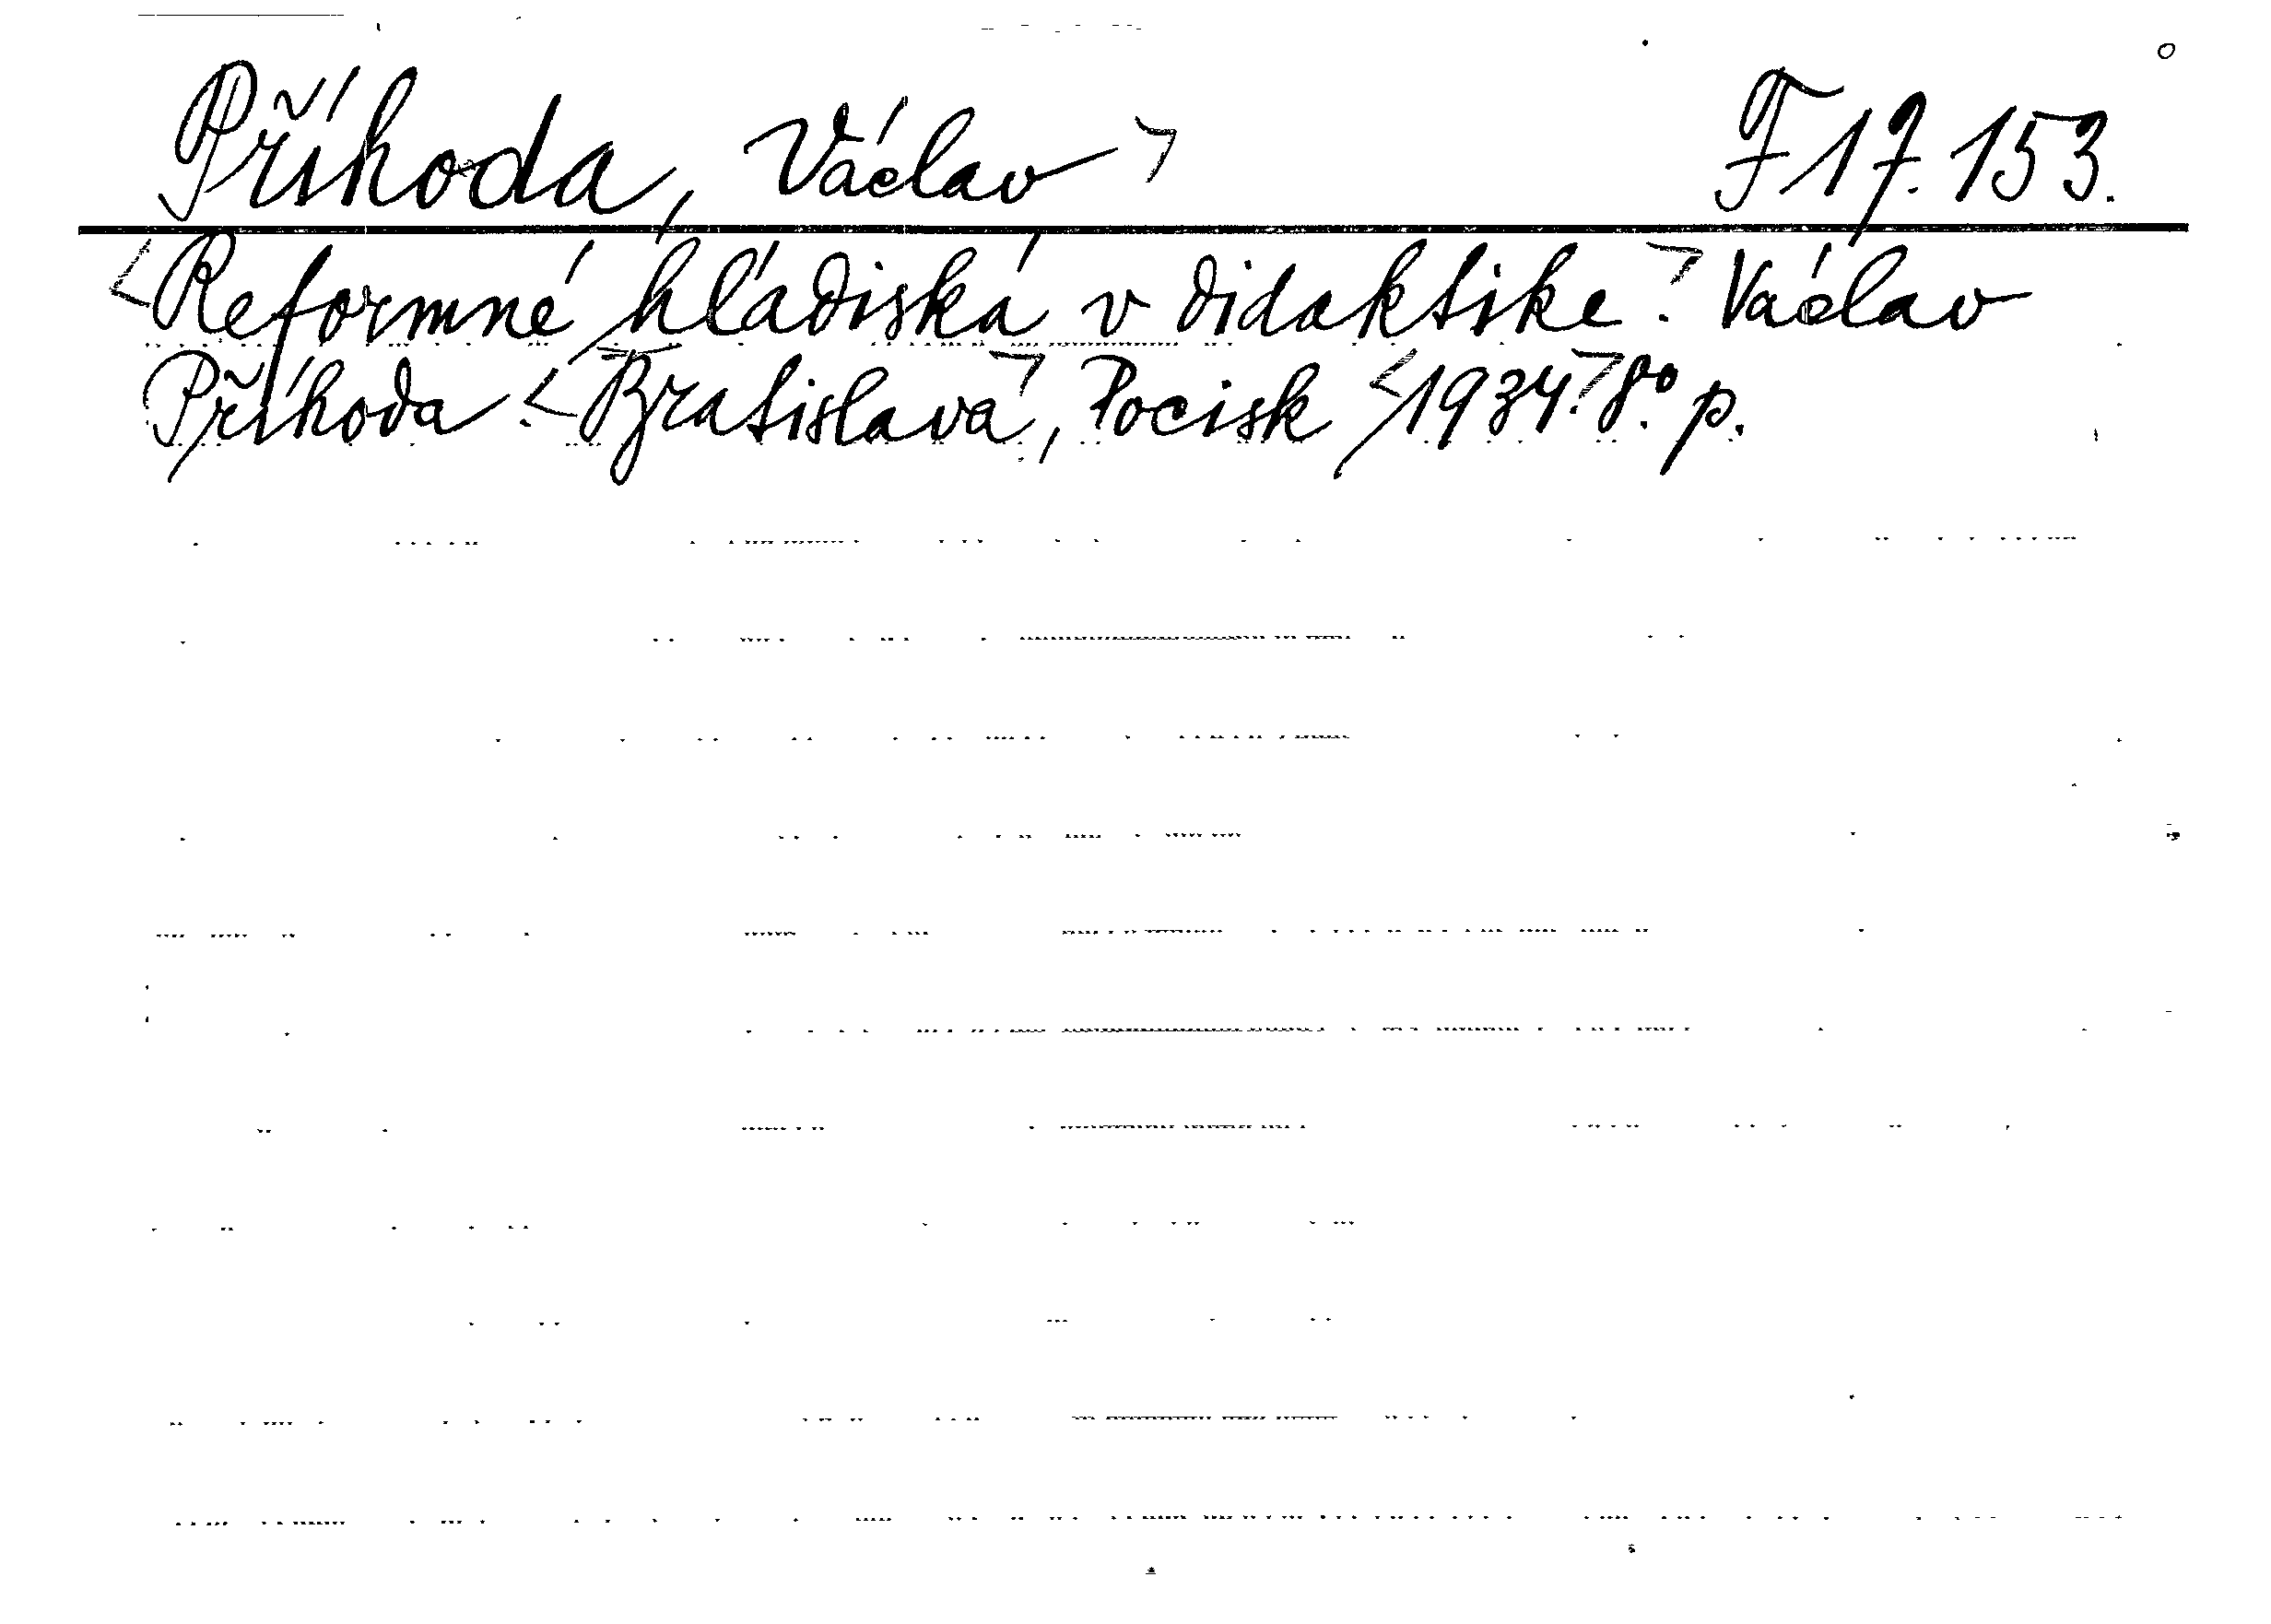 Příhoda, Václav F 17.153.
Reformné hľadiská v didaktike. Václav
Příhoda. Bratislava, Pocisk 1934. 8º. p.